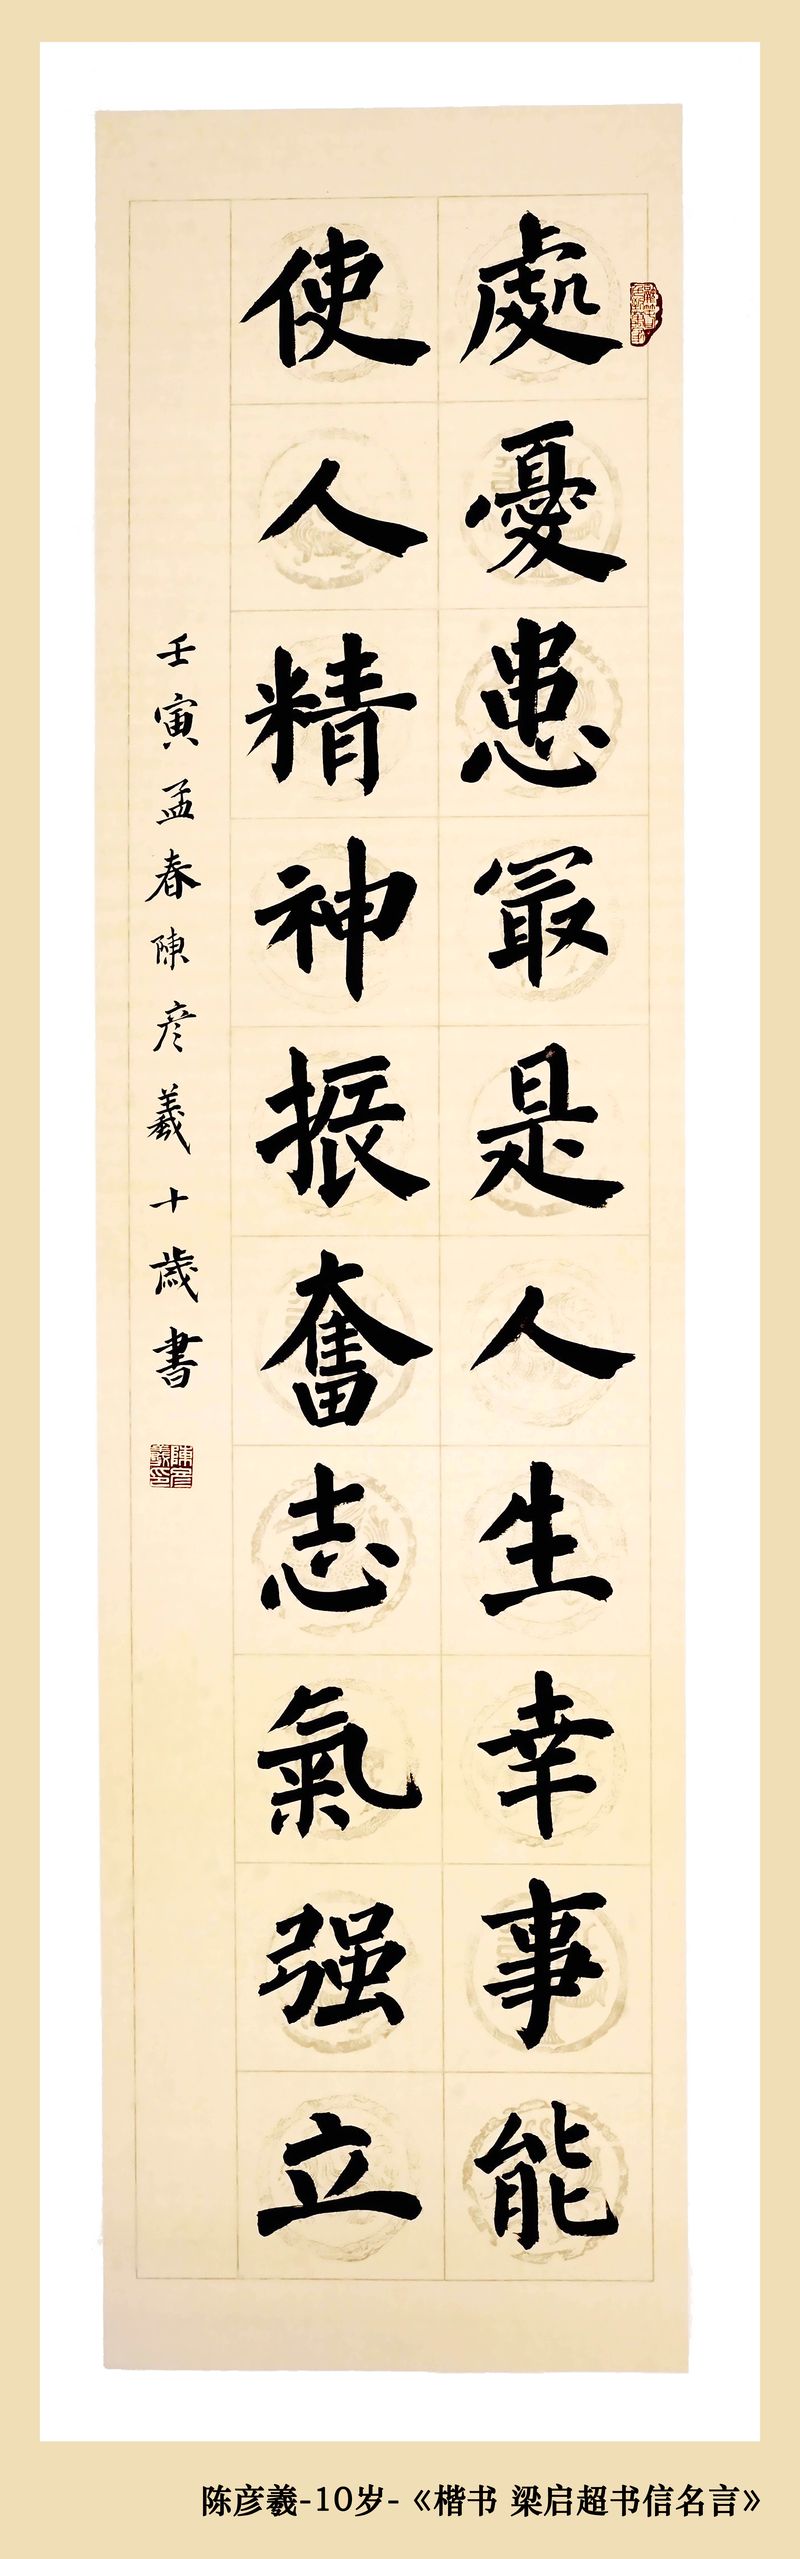 處憂患最是人生幸事能
使人精神振奮志氣强立
壬寅孟春陳彦羲十歲書
陳彦羲印
陈彦羲-10岁-《楷书 梁启超书信名言》